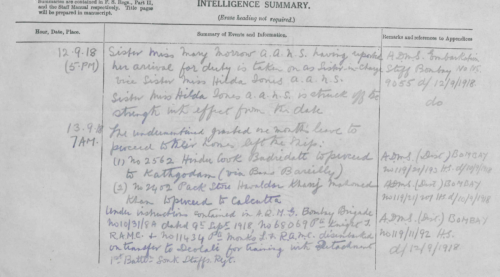 are contained in F. S. Regs., Part II.
and the Staff Manual respectively. Title pages
will be prepared in manuscript.
INTELLIGENCE SUMMARY.
(Erase heading not required.)
Hour, Date, Place.
Summary of Events and Information.
Remarks and references to Appendices
12.9.18
(5 PM)
Sister Miss Mary Morrow A.A.N.S. having reported
her arrival for duty is taken on as Sister in Charge
vice Sister Miss Hilda Jones A.A.N.S.
Sister Miss Hilda Jones A.A.N.S is struck off the
strength with effect from the date
A.D.M.S. Embarkation
Staff Bombay
9055 d/ 12/9/1918
do
13.9.18
7 AM.
The undermentioned granted one months leave to
proceed to their homes left the ship:
(1) No 2562 Hindu Cook Badridutt to proceed
to Kathgodam (via Bareilly)
(2) No 2402 Pack Store Havildar Mohamed
Khan to proceed to Calcutta
Under instructions contained in Bombay Brigade
No 10/31/8A dated 9th Sept. 1918, No 65069 Pte Knight J
R.A.M.C. & No 11434 Pte R.A.M.C. disembarked
on transfer to Deolali for training with Detachment
1st Battn South Staffs Regt.
A.D.M.S. (Dist) BOMBAY
A.D.M.S. (Dist) BOMBAY
A.D.M.S. (Dist) BOMBAY
No 119/11/92 I.S.
d/ 12/9/1918